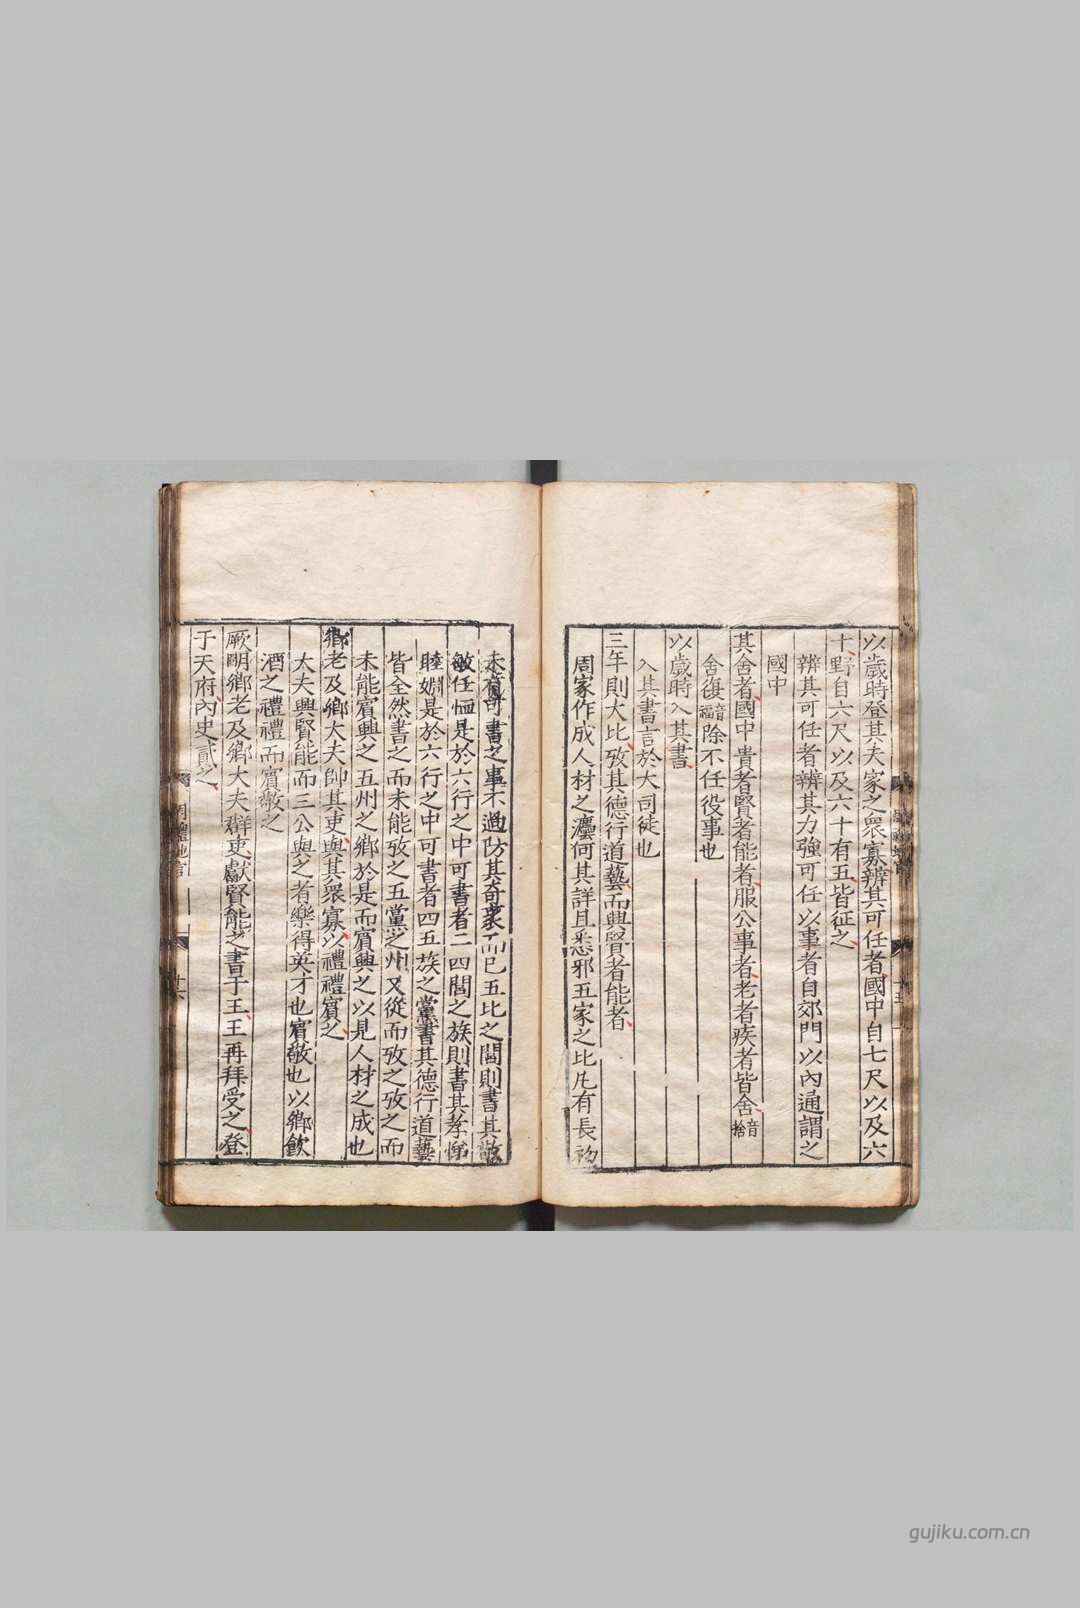 以歲時登其夫家之衆寡辨其可任者國中自七尺以及六
十野自六尺以及六十有五皆征之
辨其可任者辨其力強可任以事者自郊門以內通謂之
國中
其舍者國中貴者賢者能者服公事者老者疾者皆舍音捨
舍復音福除不任役事也
以歲時入其書
入其書言於大司徒也
三年則大比攷其德行道藝而興賢者能者
周家作成人材之灋何其詳且悉邪五家之比凡有長初
未有可書之事不過防其奇衺而已五比之閭則書其敬
敏任恤是於六行之中可書者二四閭之族則書其孝悌
睦婣是於六行之中可書者四五族之黨書其德行道藝
皆全然書之而未能攷之五黨之州又從而攷之攷之而
未能賓興之五州之鄉於是而賓興之以見人材之成也
鄉老及鄉大夫帥其吏與其衆寡以禮禮賓之
大夫興賢能而三公與之者樂得英才也賓敬也以鄉飲
酒之禮禮而賓敬之
厥明鄉老及鄉大夫群吏獻賢能之書于王王再拜受之登
于天府內史貳之
周禮地官
十六
gujiku.com.cn